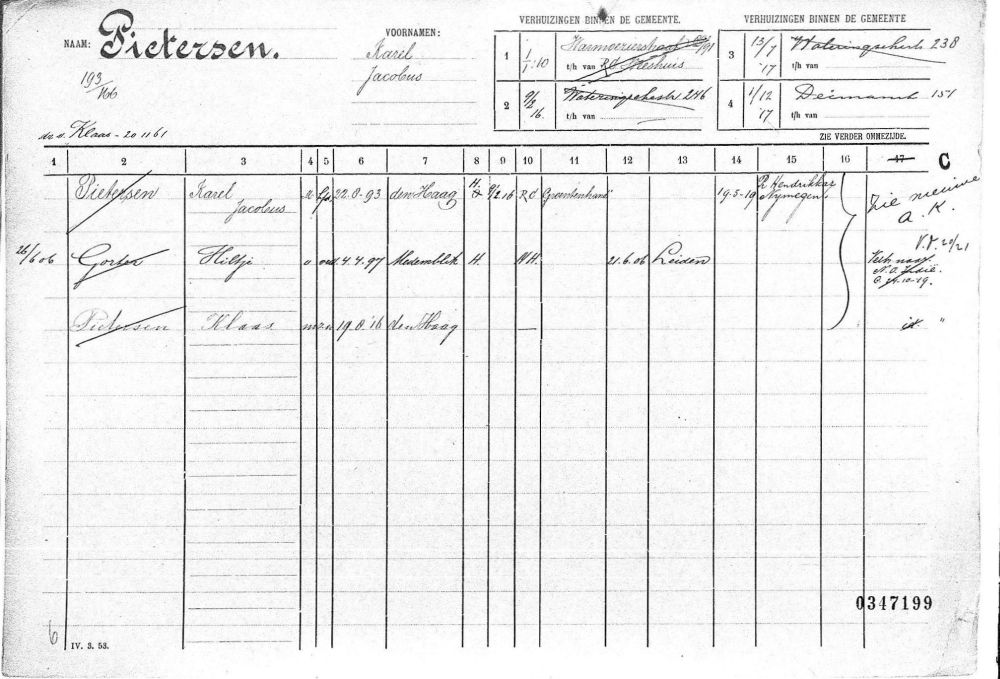 NAAM: Pietersen.
193/166
VOORNAMEN:
Karel
Jacobus
VERHUIZINGEN BINNEN DE GEMEENTE.
1 1/1 '10
t/h van R.C. Weeshuis
2 9/2 16. Wateringschestr 246
t/h van
VERHUIZINGEN BINNEN DE GEMEENTE
3 13/7 '17 Wateringschestr 238
t/h van
4 1/12 '17 Deimanst 151
t/h van
Klaas - 20 11 61
ZIE VERDER OMMEZIJDE.
1 2 3 4 5 6 7 8 9 10 11 12 13 14 15 16 17 C
Pietersen Karel Jacobus 22-8-93 den Haag H. 9/2 16 R.C. 19-5-19 Pr Hendrikkaz Nymegen. Zie nieuwe a. K.
V.V. 20/21
26/6 06 Gorter Hiltje v 4.4.97 Medemblik H. N.H. 21.6.06 Leiden Vertr naar N.O. Indië. 10-19.
Pietersen Klaas m zn 19.8.'16 den Haag — id "
0347199
6
IV. 3. 53.